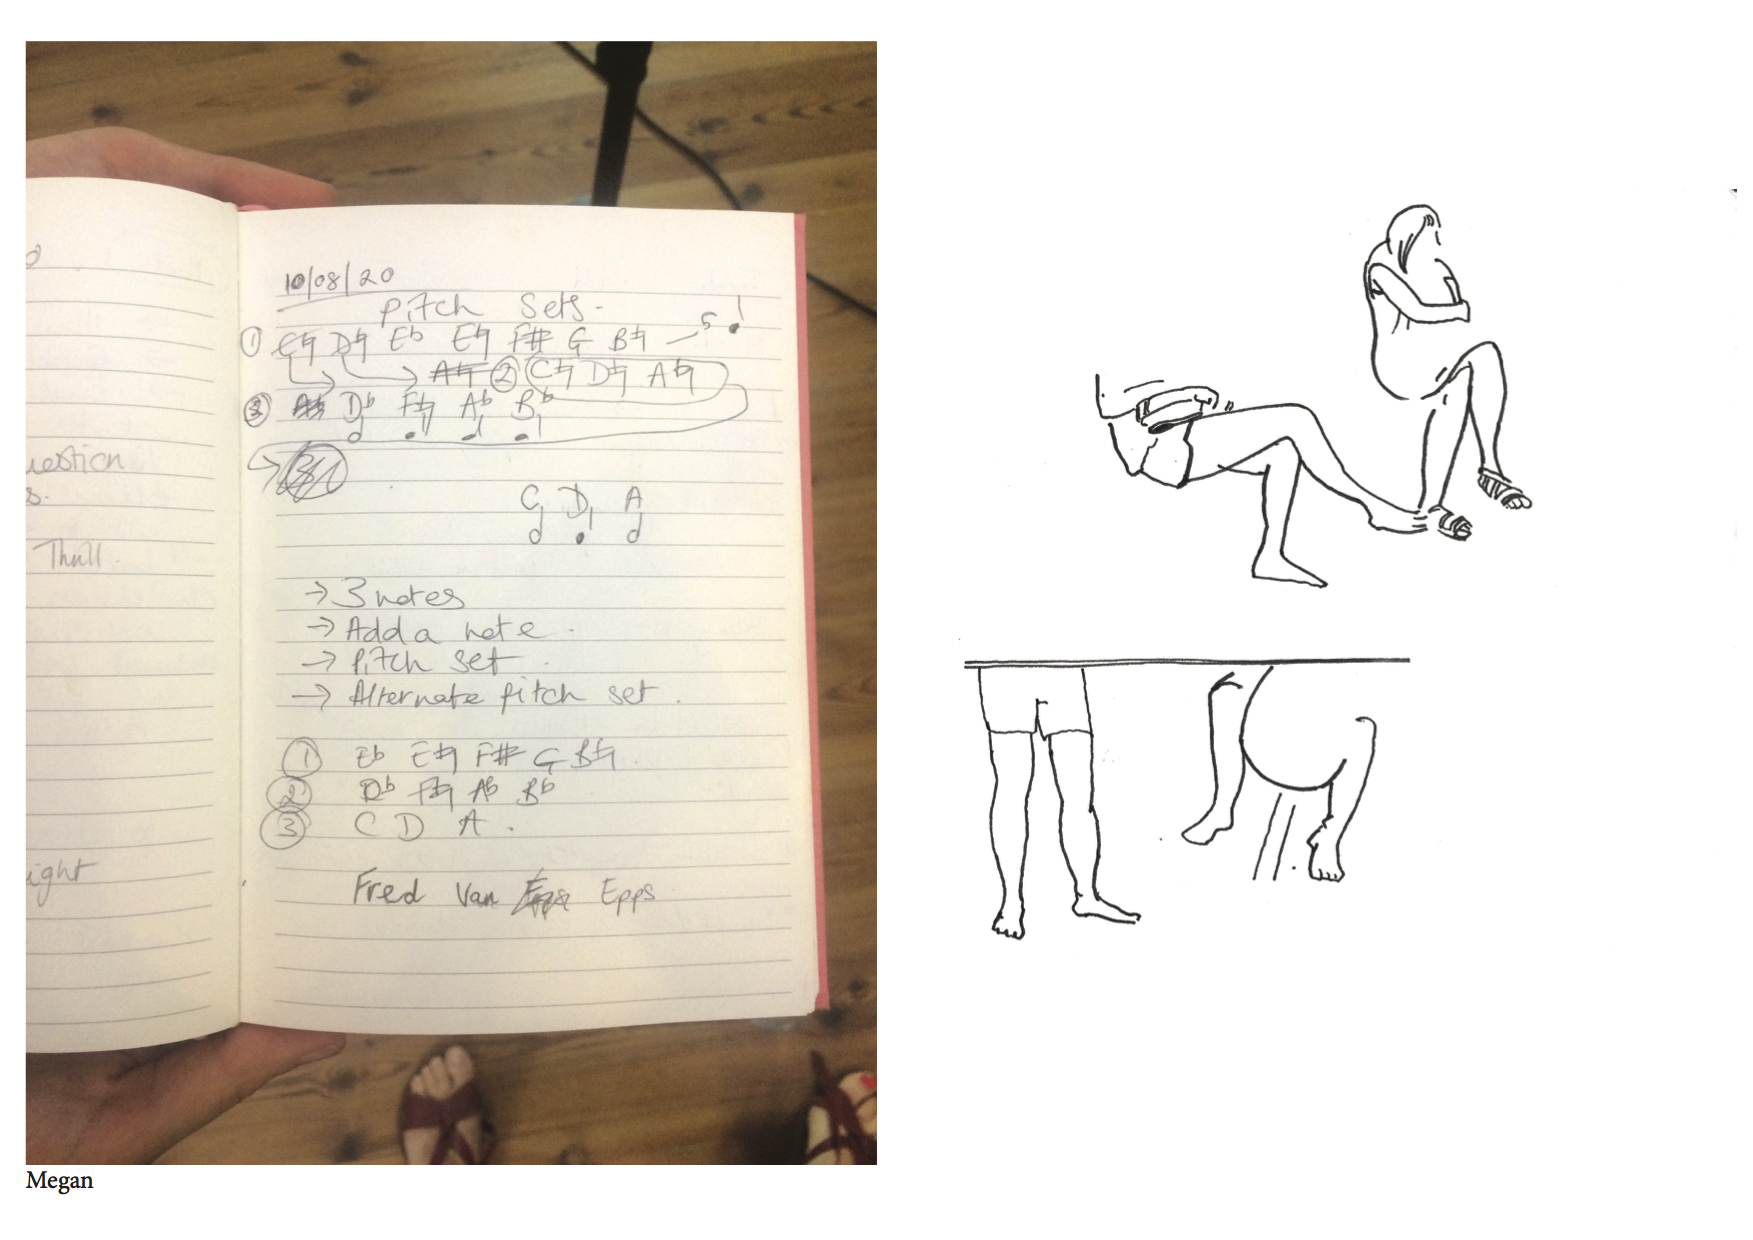 uestion
s.
Thull.
ight
10/08/20
Pitch Sets.
① C♮ D♮ E♭ E♮ F# G B♮ – 5
A♮ ② C♮ D♮ A♮
③ D♭ F♮ A♭ B♭
C D A
→ 3 notes
→ Add a note.
→ Pitch set.
→ Alternate pitch set.
① E♭ E♮ F# G B♮.
② D♭ F♮ A♭ B♭
③ C D A.
Fred Van Epps Epps
Megan